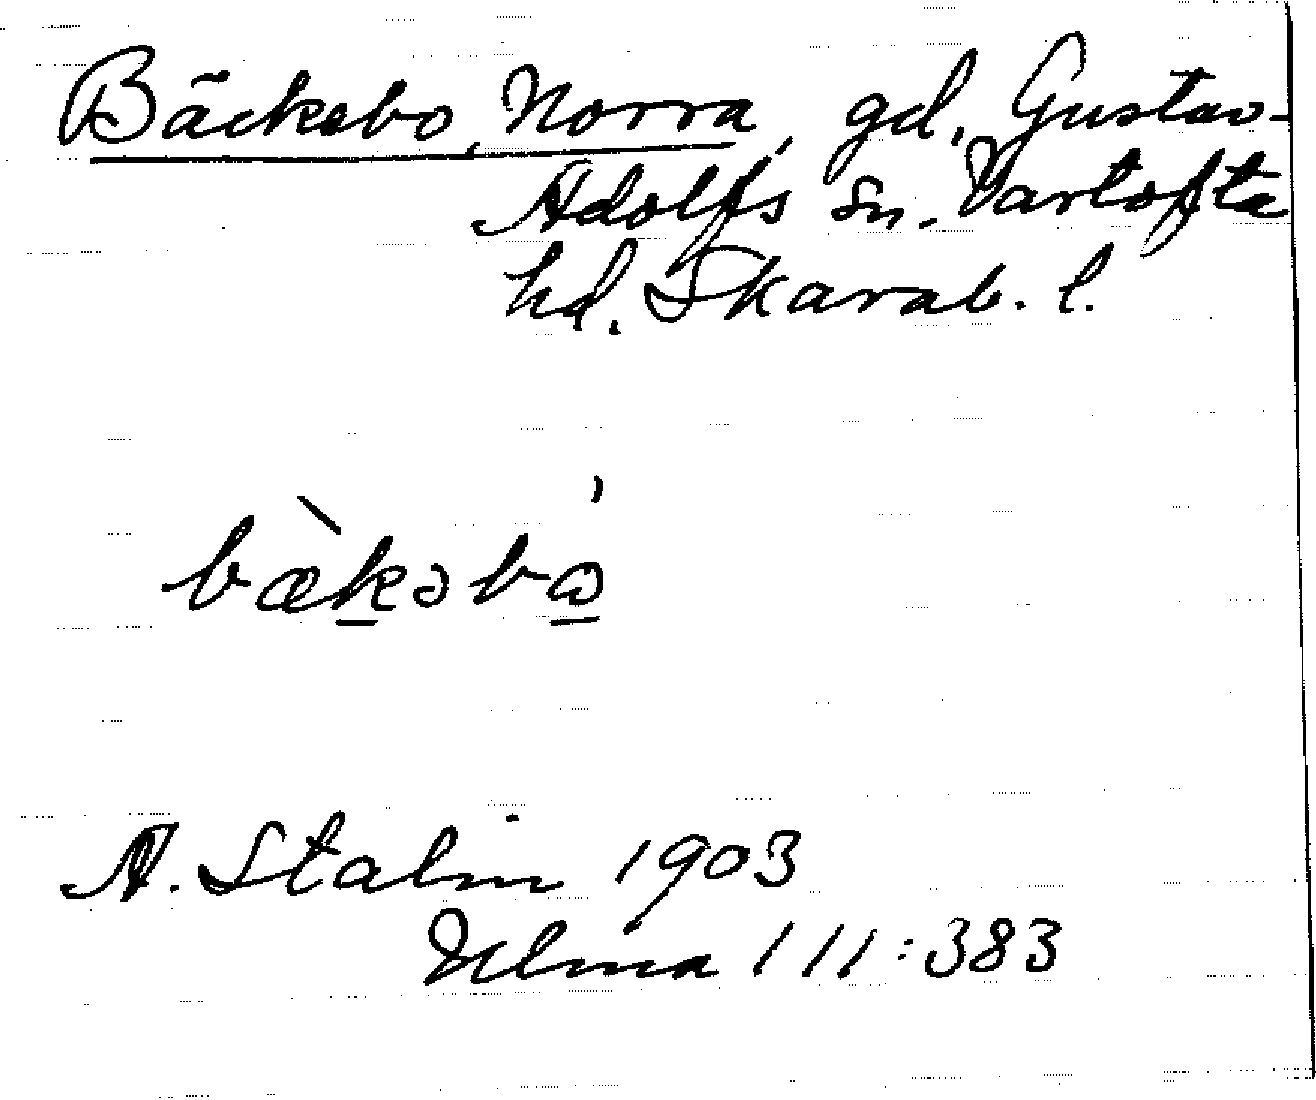 Bäckebo, Norra, gd, Gustav-
Adolfs sn. Vartofta
hd. Skarab. l.
bæ̀kəbo̲
A. Stalin 1903
Ulma 111:383